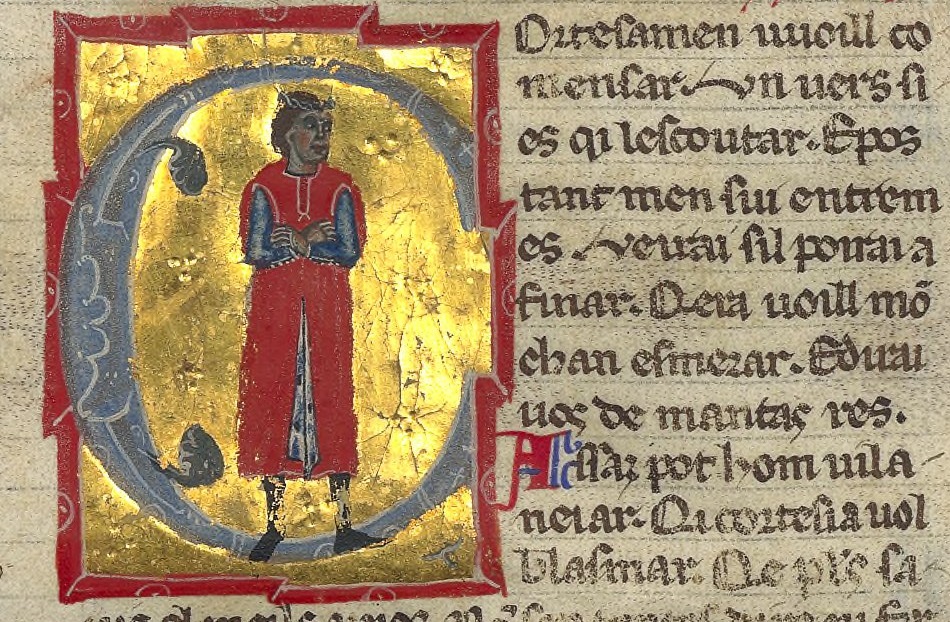 Ortesamen uuoill co
mensar. Un uers si
es qi lescoutar. Epos
tant men sui entrem
es. Veirai sil poirai a
finar. Qera uoill mõ
chan esmerar. Edirai
uos de mantas res.
Assatz pot hom uila
neiar. Qi cortesia uol
blasmar. Qe pls sa